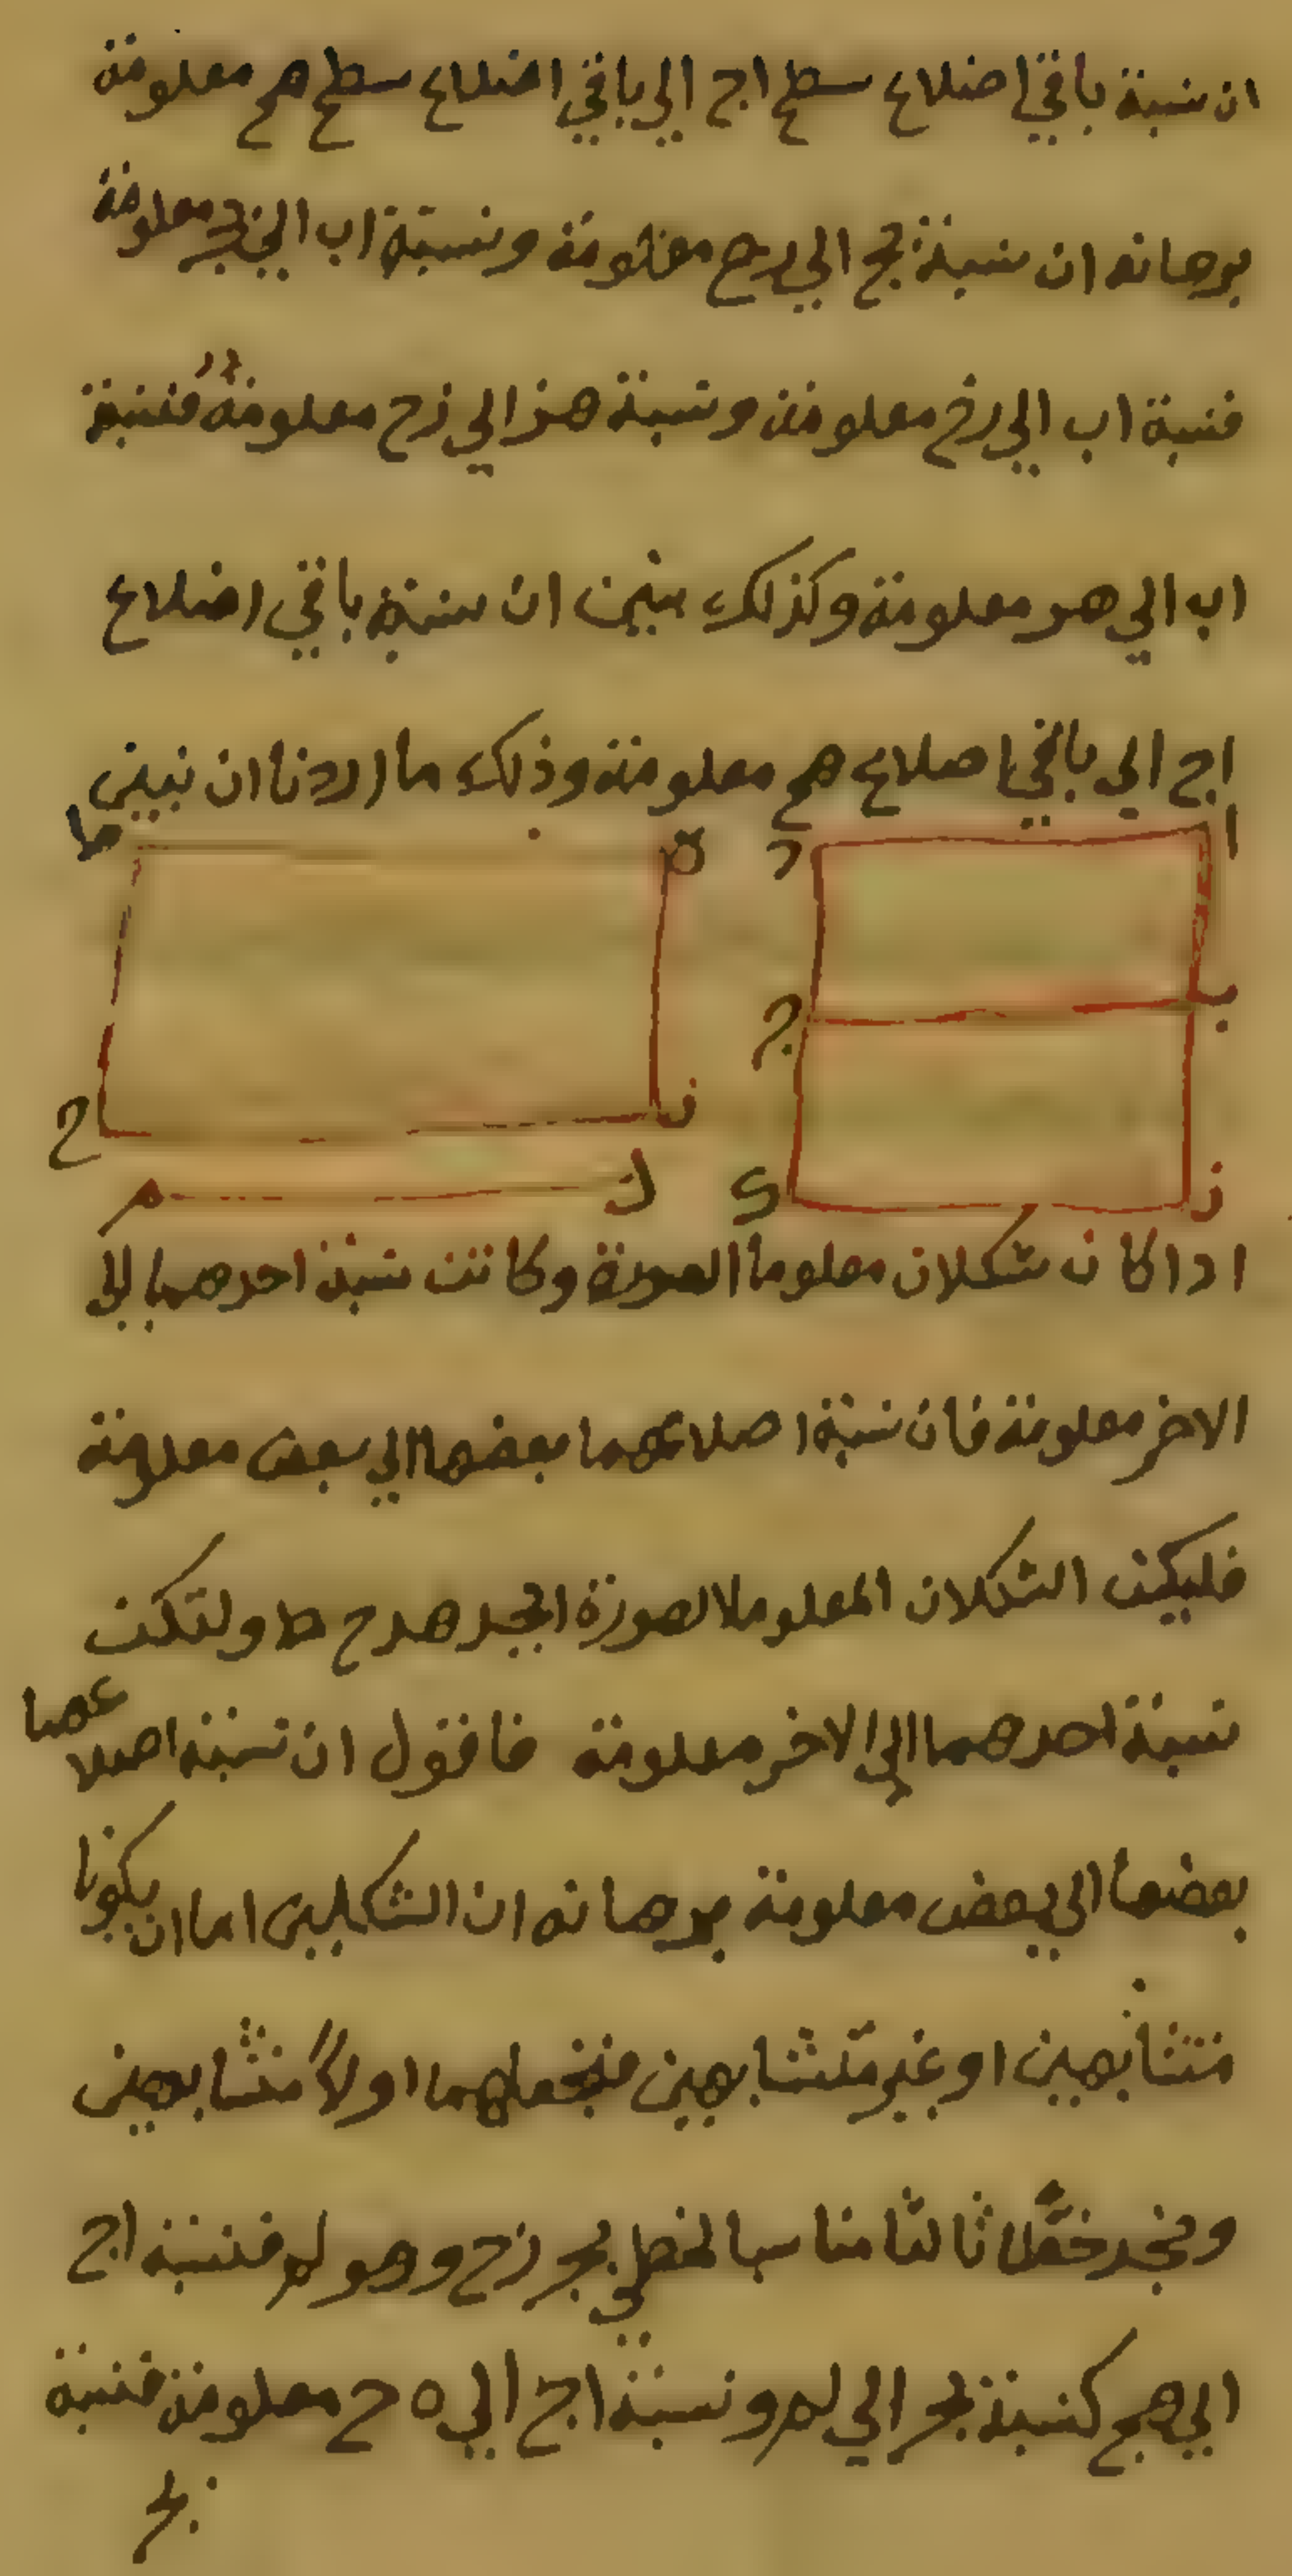 ان نسبة باقي اضلاع سطح اج الي باقي اضلاع سطح هح معلومة
برهانه ان نسبة بج الي رح معلومة ونسبة اب الي بج معلومة
فنسبة اب الي زح معلومة ونسبة هز الي زح معلومة فنسبة
اب الي هر معلومة وكذلك نبين ان نسبة باقي اضلاع
اج الي باقي اضلاع هح معلومة وذلك ما اردنا ان نبين
ا د ه ط
ب ج
ز ي ز ح
ك م
اذا كان شكلان معلوما الصورة وكانت نسبة احدهما الى
الاخر معلومة فان نسبة اضلاعهما بعضها الي بعض معلومة
فليكن الشكلان المعلوما الصورة ابجد هدح ط ولتكن
نسبة احدهما الى الاخر معلومة فاقول ان نسبة اضلاعهما
بعضها الي بعض معلومة برهانه ان الشكلين اما ان يكونا
متشابهين او غير متشابهين فنجعلهما اولاً متشابهين
ونجد خطًا ثالثا مناسبا لخطي بجر زح وهو لم فنسبة اج
الي هح كنسبة بجر الي لم ونسبة اج الي ه ح معلومة فنسبة
بج